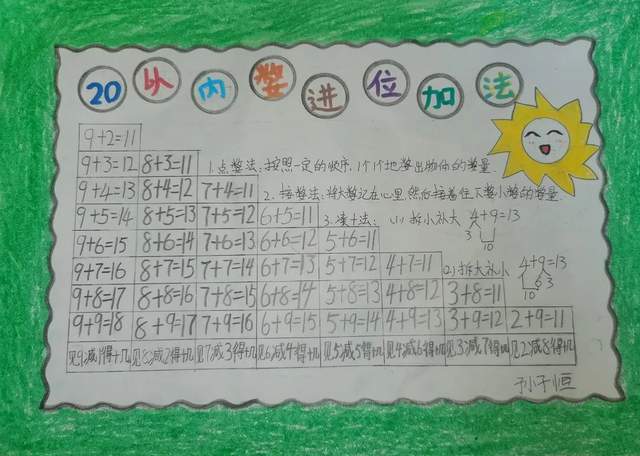 20以内数进位加法
9+2=11
9+3=12 8+3=11 1.点数法:按照一定的顺序,1个1个地数出物体的数量.
9+4=13 8+4=12 7+4=11 2.接数法:将大数记在心里,然后接着往下数小数的数量.
9+5=14 8+5=13 7+5=12 6+5=11 3.凑十法: (1)拆小补大 4+9=13
9+6=15 8+6=14 7+6=13 6+6=12 5+6=11 3 1 10
9+7=16 8+7=15 7+7=14 6+7=13 5+7=12 4+7=11 (2)拆大补小 4+9=13
6 3
9+8=17 8+8=16 7+8=15 6+8=14 5+8=13 4+8=12 3+8=11 10
9+9=18 8+9=17 7+9=16 6+9=15 5+9=14 4+9=13 3+9=12 2+9=11
见9减1得十几 见8减2得十几 见7减3得十几 见6减4得十几 见5减5得十几 见4减6得十几 见3减7得十几 见2减8得十几
孙子恒